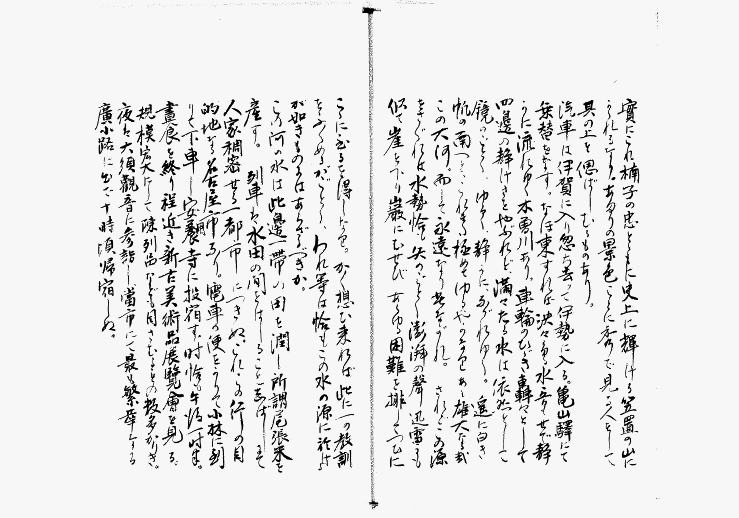 實にこれ楠子の忠とともに史上に輝ける笠置の山に
其の上を偲ばしむるものあり。
汽車は伊賀に入り忽ち去って伊勢に入る。亀山驛にて
乗替をなす。なほ東すれば
うに流れゆく木曽川あり。車輪のひゞき轟々として
四邊の静けさをやぶれど満々たる水は依然として
鏡のごとく ゆるく静かに ながれゆく。遥に白き
この大河。而して永遠なり
をさぐれば水勢恰も矢のごとく澎湃の聲迅雷にも
似て崖を下り巌にむせび あらゆる困難を排してつひに
こゝに至るを得しなり。かく想ひ来れば此に一の教訓
をふくめるがごとく、われ等は恰もこの水の源に於ける
が如きものにはあらざるべきか。
この河の水は此邊一帯の田を潤し所謂尾張米を
産す。列車は水田の間をはしること
人家稠密せる一都市につきぬ。これこの行の目
的地なる名古屋市なり。電車の便をかりて小林に到
りて下車し安養寺に投宿す。時恰も午後一時半。
晝食を終り程近き新古美術品展覧會を見る。
規模宏大にして陳列品なども目さむるもの
夜は大須觀音に参詣し當市にて最も繁華なる
廣小路に出で十時頃帰宿しぬ。